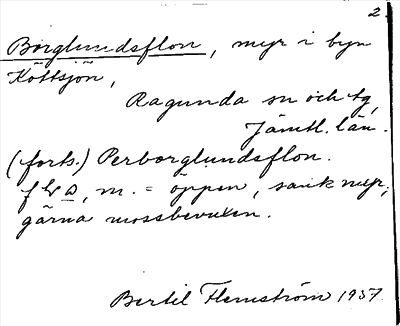 2.
Borglundsflon, myr i byn
Köttsjön,
Ragunda sn och tg,
Jämtl. län.
(forts.) Perborglundsflon.
m. = öppen, sank myr,
gärna mossbevuxen.
Bertil Flemström 1957.